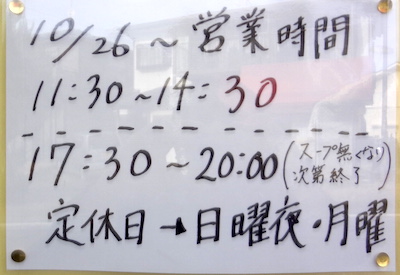 10/26〜営業時間
11:30〜14:30
17:30〜20:00(スープ無くなり次第終了)
定休日→日曜夜・月曜